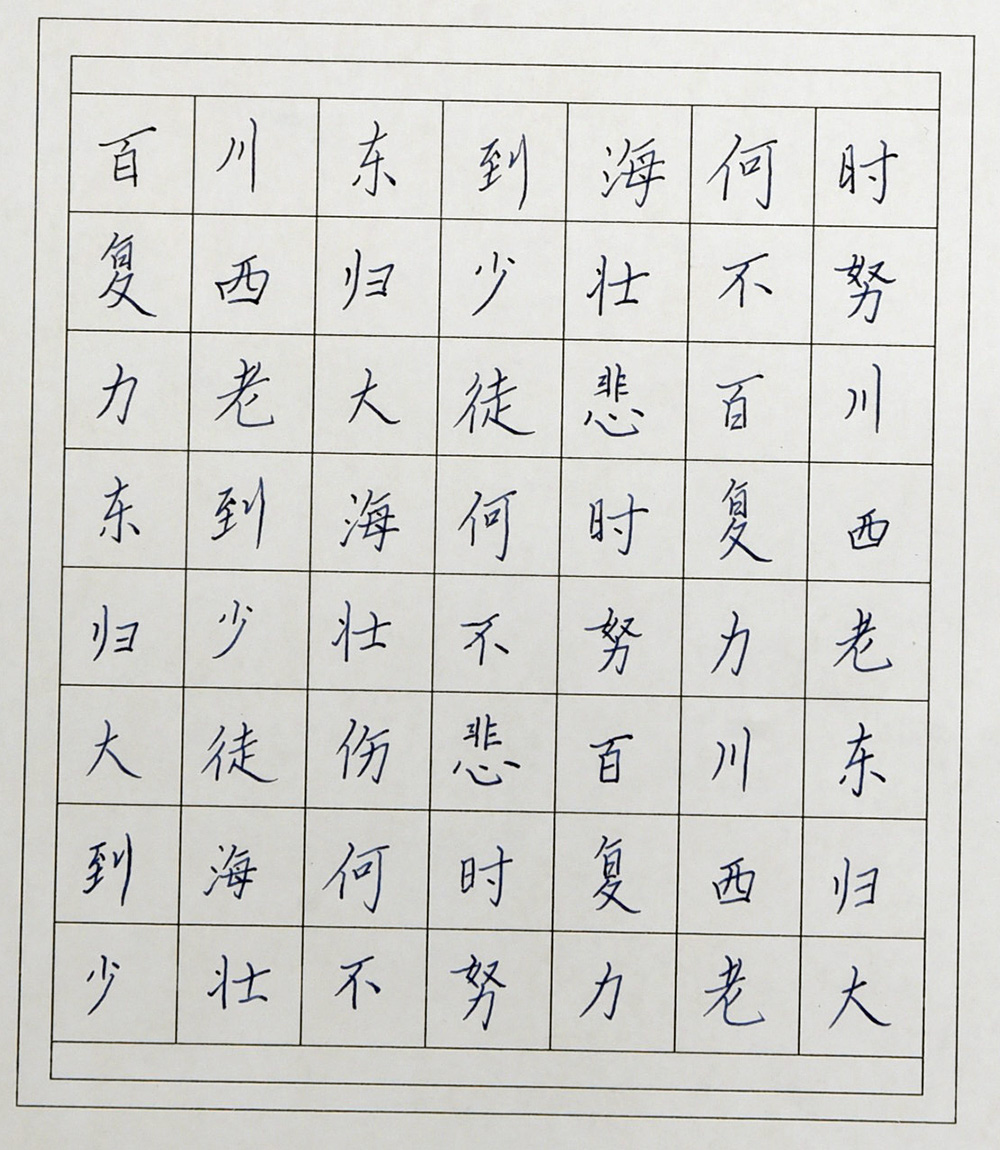 百川东到海何时
复西归少壮不努
力老大徒悲百川
东到海何时复西
归少壮不努力老
大徒伤悲百川东
到海何时复西归
少壮不努力老大